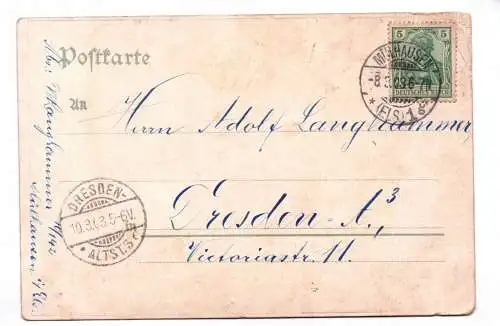 Postkarte
An
Herrn Adolf Langhammer
Dresden-A,3
Victoriastr. 11.
5 5
MÜLHAUSEN
-8.3.03.6-7N
* (ELS) 1 g
DRESDEN-
10.3.03.5-6V.
* ALTST.3
Abs: Langhammer
Mülhausen i/Els.